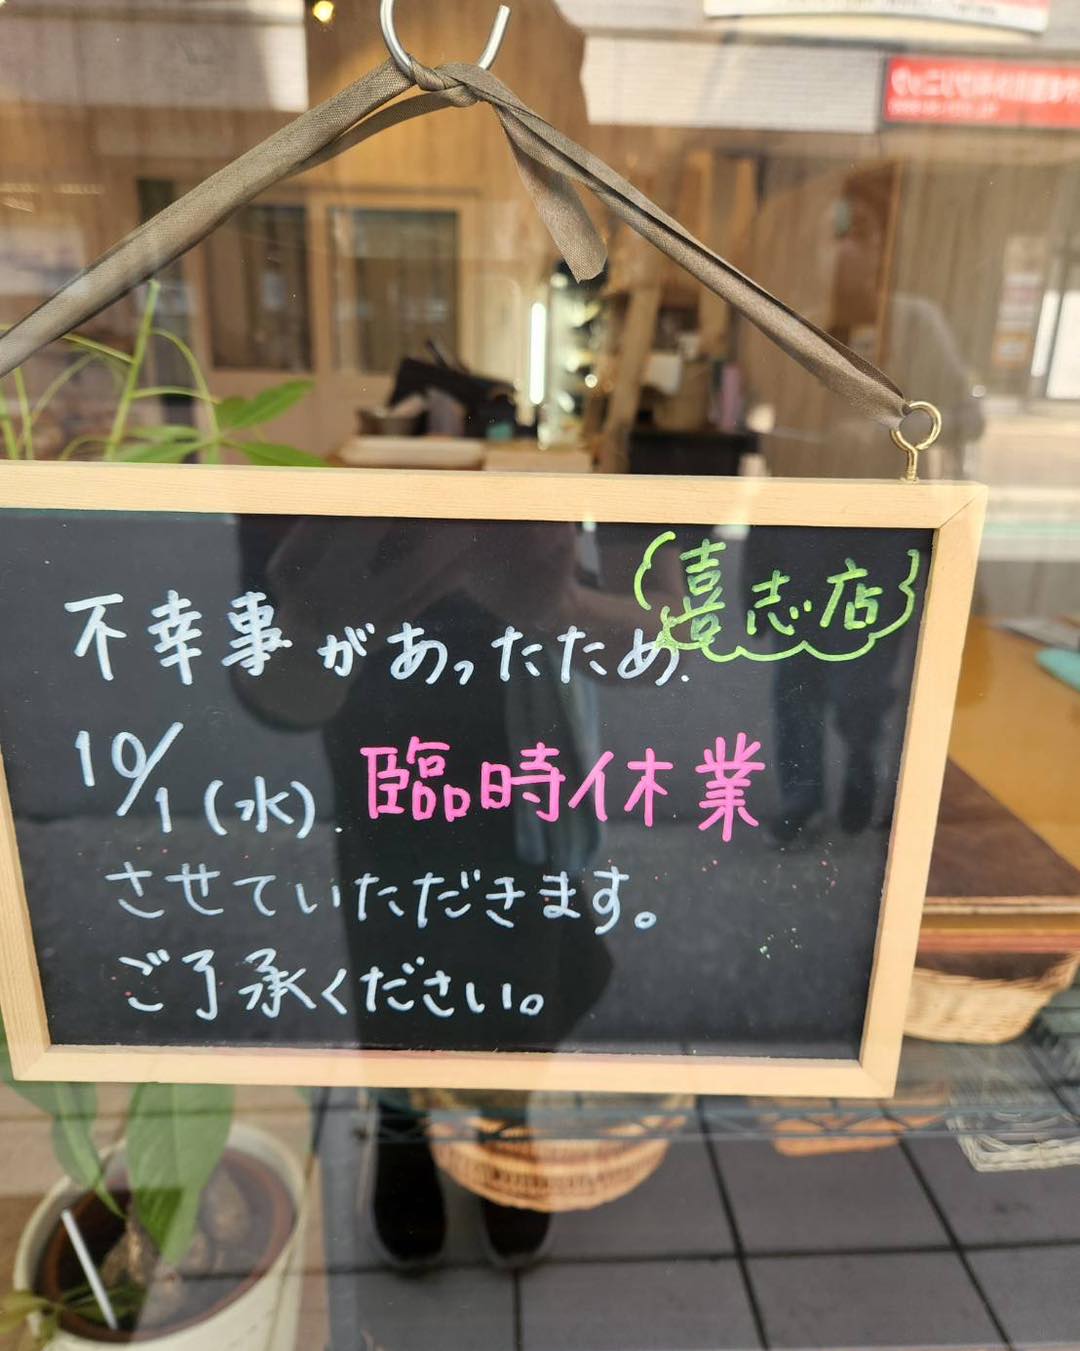 喜志店
不幸事があったため.
10/1(水). 臨時休業
させていただきます。
ご了承ください。